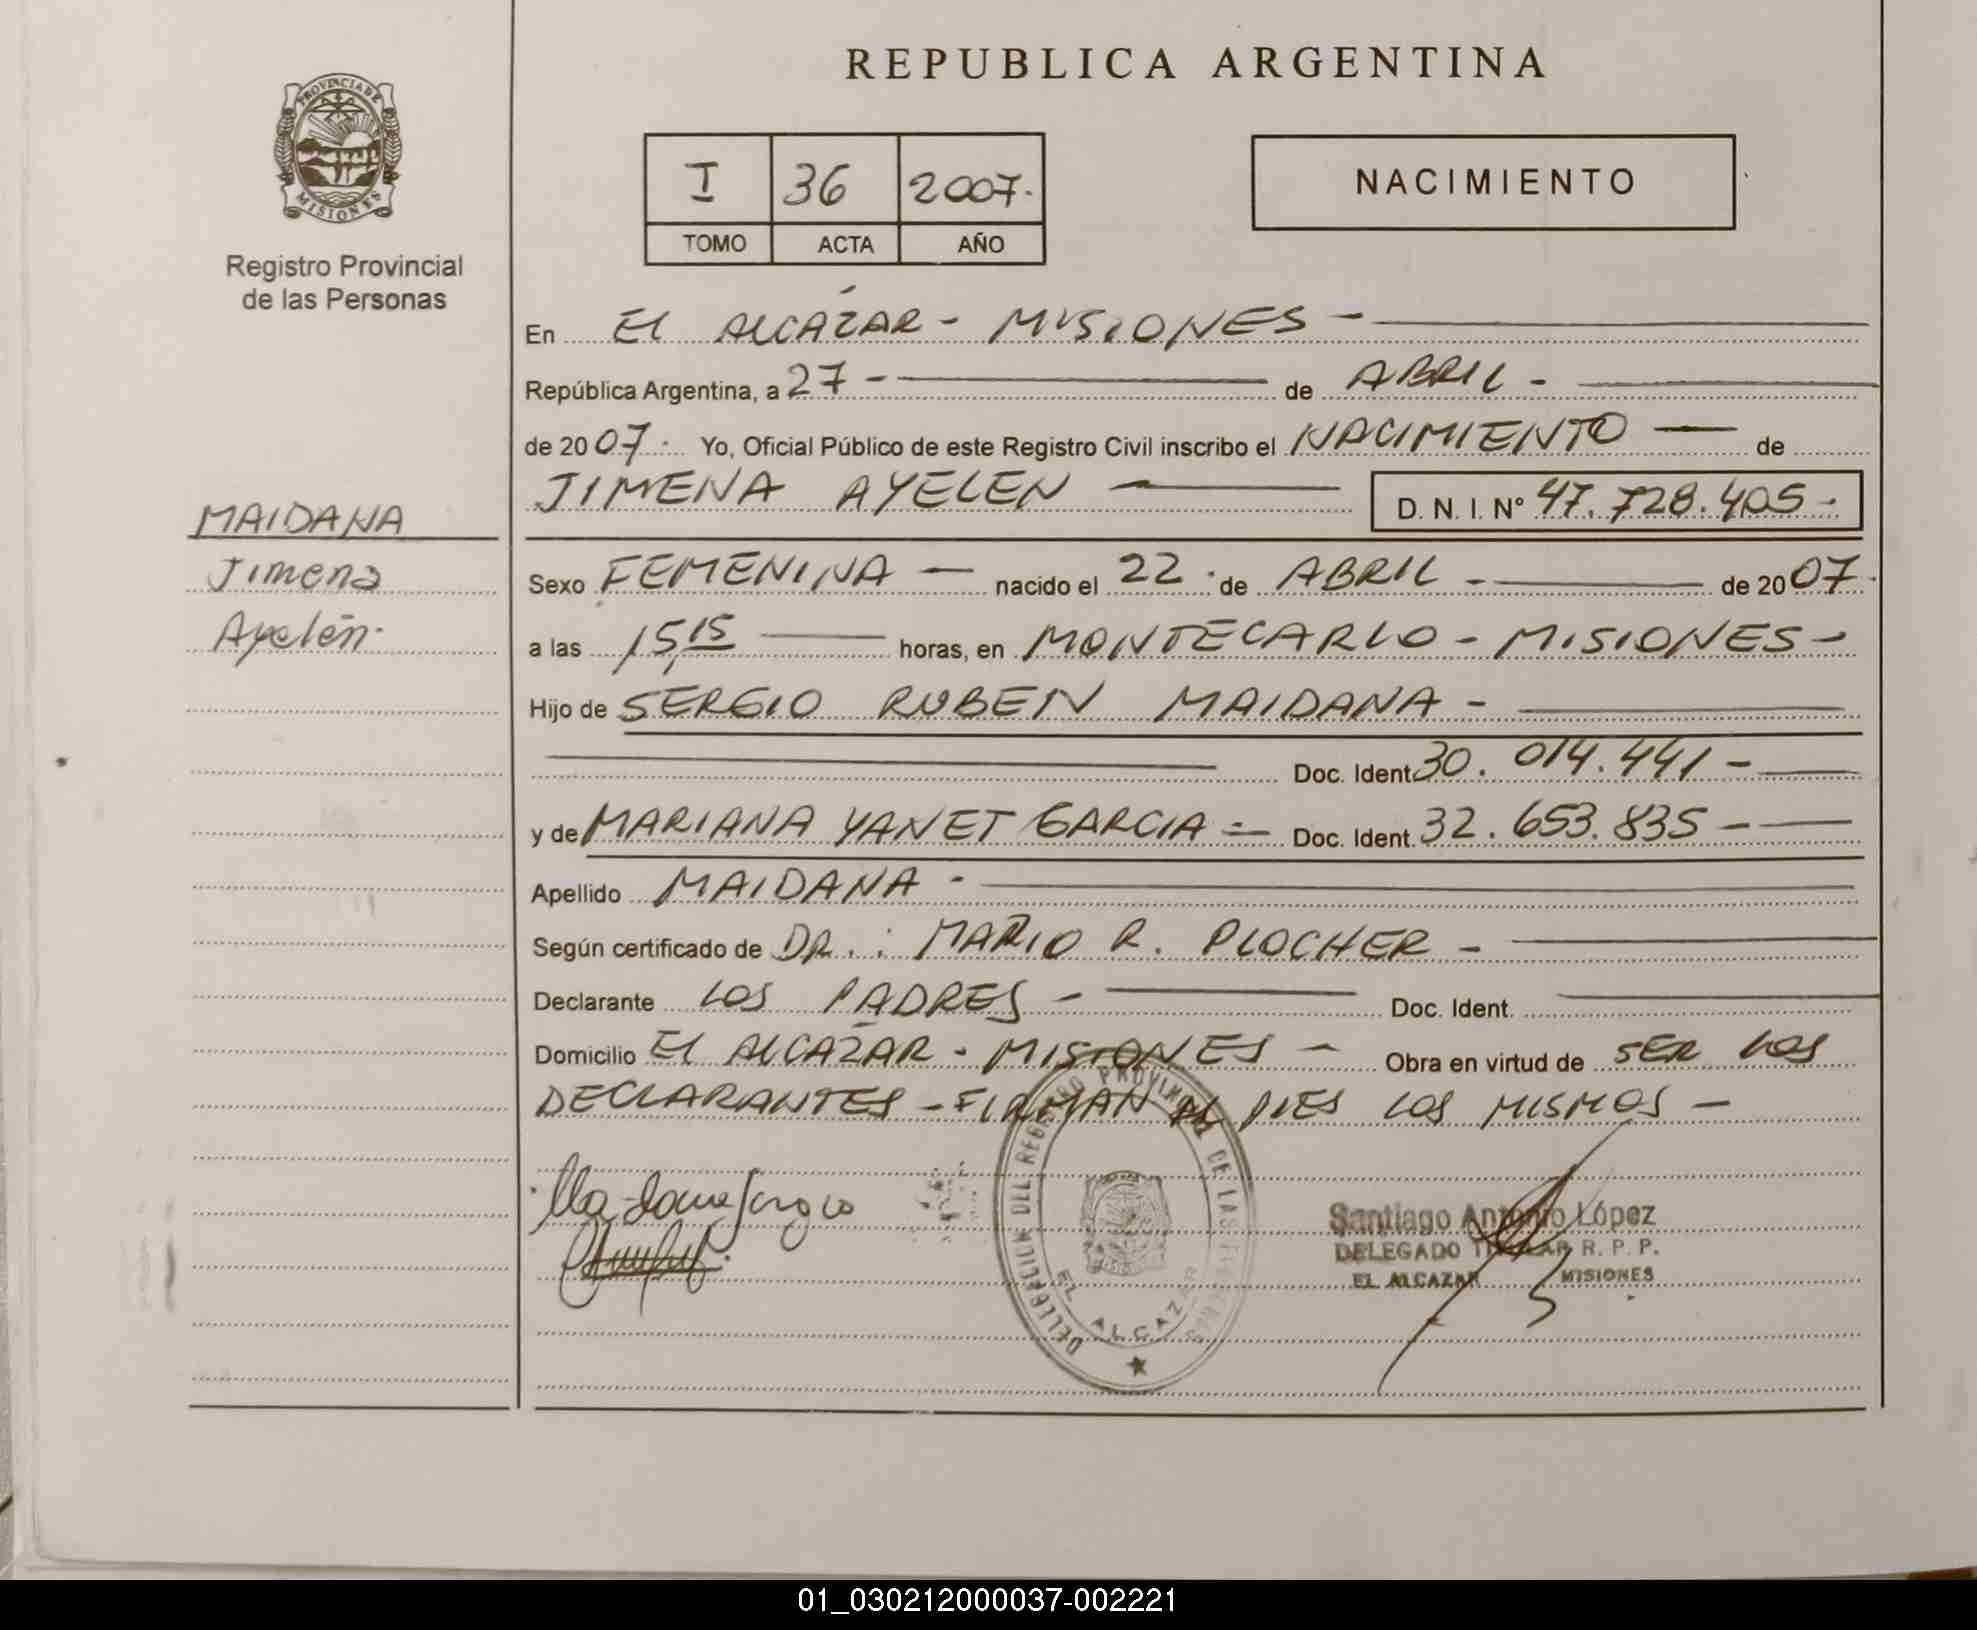 REPUBLICA ARGENTINA
PROVINCIA DE
MISIONES
Registro Provincial
de las Personas
I 36 2007.
TOMO ACTA AÑO
NACIMIENTO
En El ALCÁZAR - MISIONES -
República Argentina, a 27 - de ABRIL -
de 2007. Yo, Oficial Público de este Registro Civil inscribo el NACIMIENTO — de
JIMENA AYELEN — D. N. I. Nº 47.728.405 -
MAIDANA
Jimena
Ayelén.
Sexo FEMENINA — nacido el 22 . de ABRIL - de 2007.
a las 15,15 — horas, en MONTECARLO - MISIONES -
Hijo de SERGIO RUBEN MAIDANA -
Doc. Ident 30. 014.441 -
y de MARIANA YANET GARCIA = Doc. Ident. 32. 653.835 -
Apellido MAIDANA -
Según certificado de DR.: MARIO R. PLOCHER -
Declarante LOS PADRES - Doc. Ident.
Domicilio El ALCÁZAR - MISIONES - Obra en virtud de SER LOS
DECLARANTES - FIRMAN AL PIES LOS MISMOS -
DELEGACION DEL REGISTRO PROVINCIAL DE LAS PERSONAS
EL ALCAZAR
Santiago Antonio López
DELEGADO TITULAR R. P. P.
EL ALCAZAR MISIONES
01_030212000037-002221